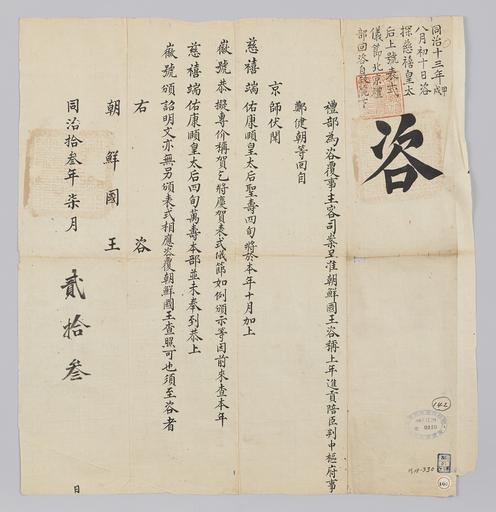 同治十三年甲戌
八月初十日咨
探慈禧皇太
后上號表式
儀節北京禮
部回咨自
咨
禮部為咨覆事主客司案呈准朝鮮國王咨稱上年進貢陪臣判中樞府事
鄭健朝等回自
京師伏聞
慈禧端佑康頤皇太后聖壽四旬將於本年十月加上
徽號恭擬專价稱賀乞將慶賀表式儀節如例頒示等因前來查本年
慈禧端佑康頤皇太后四旬萬壽本部並未奉到恭上
徽號頒詔明文亦無另頒表式相應咨覆朝鮮國王查照可也須至咨者
右咨
朝鮮國王
同治拾叁年柒月
貳拾叁
日
142